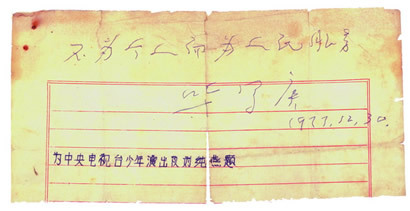 不为个人而为人民服务
华罗庚
1977.12.30.
为中央电视台少年演出队刘纯题